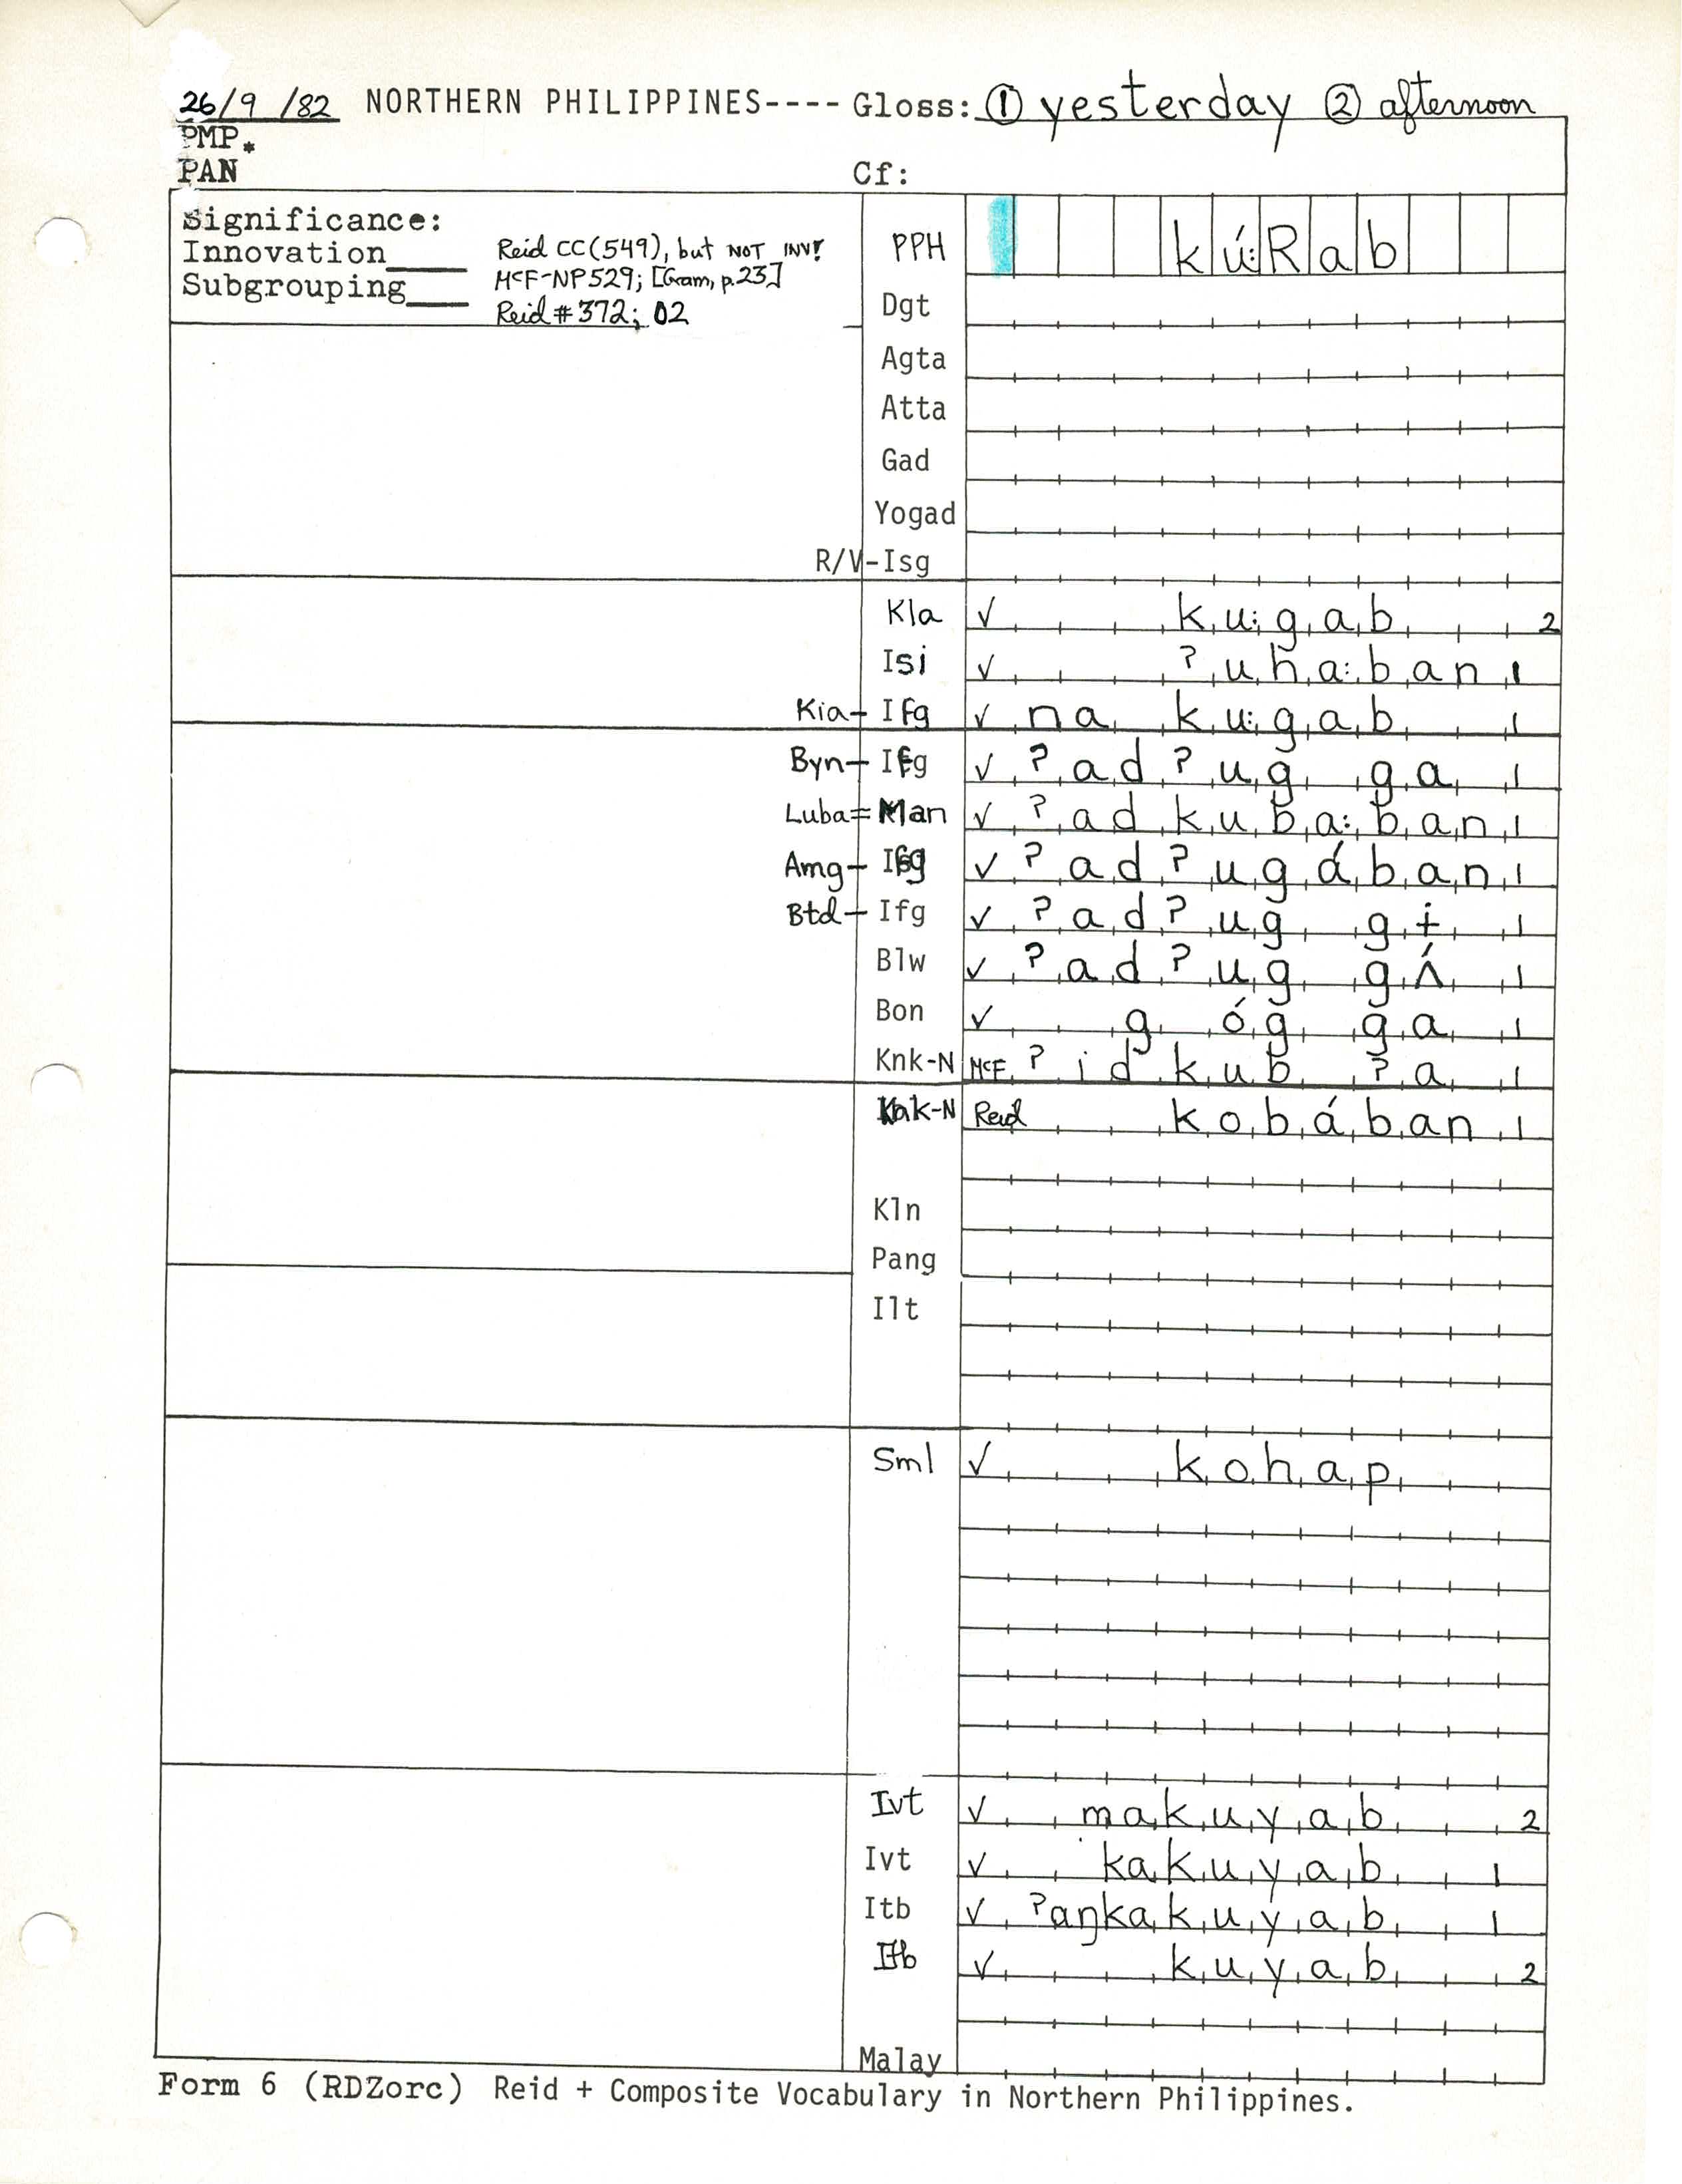 26/9/82 NORTHERN PHILIPPINES---- Gloss: ① yesterday ② afternoon
PMP*
PAN Cf:
Significance:
Innovation____ Reid CC (549), but NOT INV!
Subgrouping____ McF-NP529; [Gram, p.23]
Reid #372; 02
PPH kú:Rab
Dgt
Agta
Atta
Gad
Yogad
R/V-Isg
Kla ✓ ku:gab 2
Isi ✓ ʔuha:ban 1
Kia-Ifg ✓ na ku:gab 1
Byn-Ifg ✓ ʔadʔug ga 1
Luba=Man ✓ ʔadkuba:ban 1
Amg-Ifg ✓ ʔadʔugában 1
Btd-Ifg ✓ ʔadʔug gɨ 1
Blw ✓ ʔadʔug gʌ́ 1
Bon ✓ g óg ga 1
Knk-N McF ʔidkub ʔa 1
Knk-N Reid kobában 1
Kln
Pang
Ilt
Sml ✓ kohap
Ivt ✓ makuyab 2
Ivt ✓ kakuyab 1
Itb ✓ ʔaŋkakuyab 1
Itb ✓ kuyab 2
Malay
Form 6 (RDZorc) Reid + Composite Vocabulary in Northern Philippines.